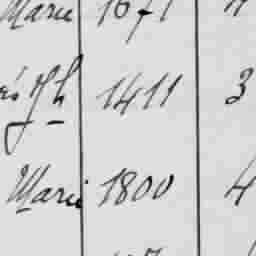 Marie 1671 4
és Jh 1411 3
Marie 1800 4